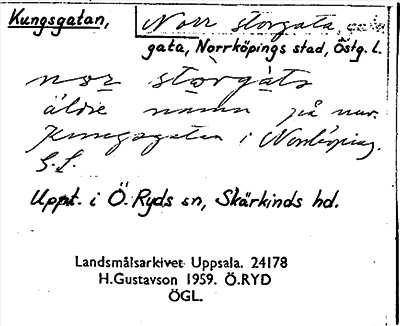 Kungsgatan, Norr storgata,
gata, Norrköpings stad, Östg. l.
nor storgata
äldre namn på nuv.
Kungsgatan i Norrköping.
G.S.
Uppt. i Ö. Ryds sn, Skärkinds hd.
Landsmålsarkivet Uppsala. 24178
H.Gustavson 1959. Ö.RYD
ÖGL.